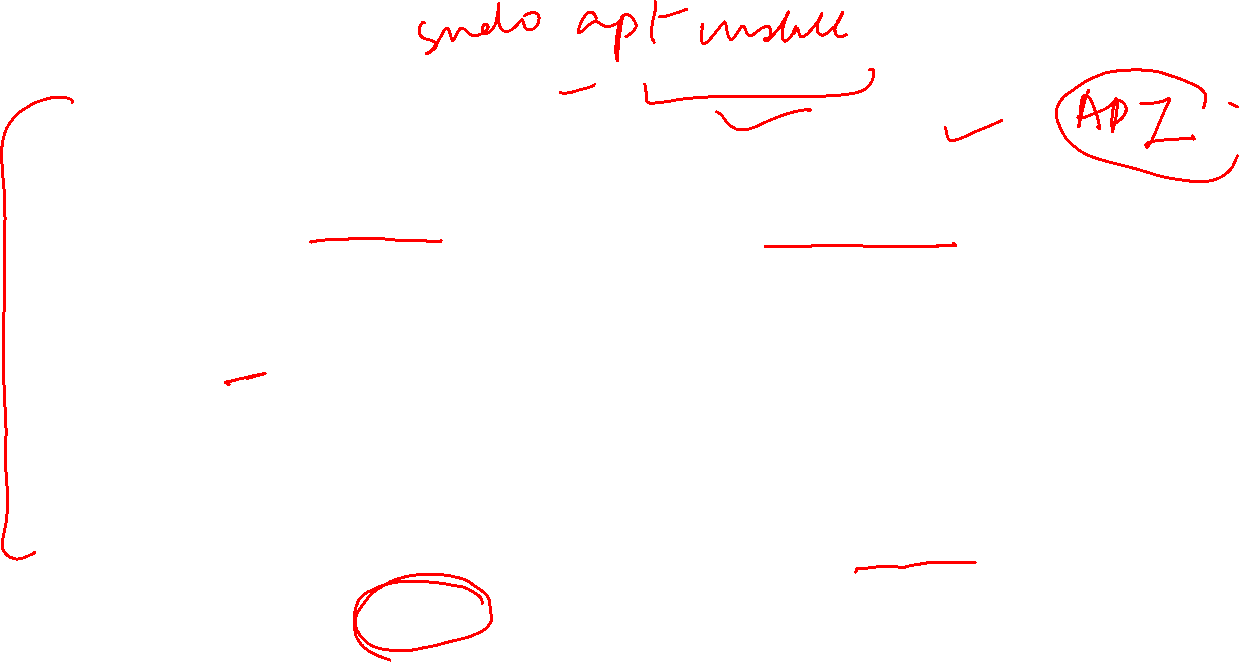 sudo apt install
API